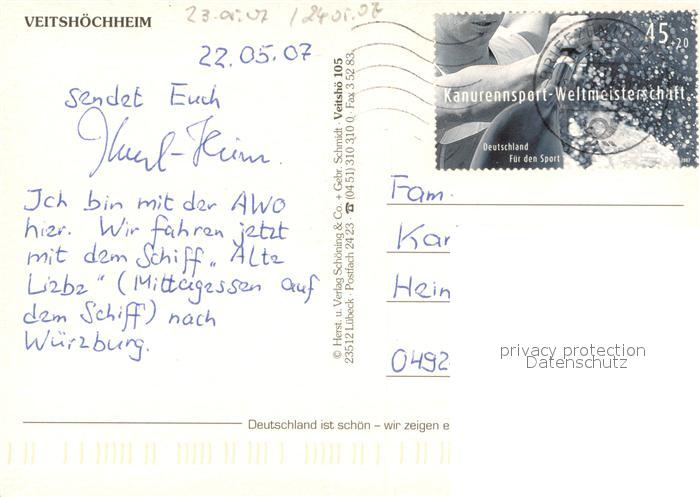 VEITSHÖCHHEIM
22.05.07
sendet Euch
Ich bin mit der AWO
hier. Wir fahren jetzt
mit dem Schiff „Alte
Liebe" (Mittagessen auf
dem Schiff) nach
Würzburg.
© Herst. u. Verlag Schöning & Co. + Gebr. Schmidt · Veitshö 105
23512 Lübeck · Postfach 24 23 · ☎ (04 51) 310 310 0 · Fax 3 52 83
45+20
Kanurennsport-Weltmeisterschaft
Deutschland
Für den Sport
Fam.
Kar
Hein
0492
privacy protection
Datenschutz
Deutschland ist schön – wir zeigen e